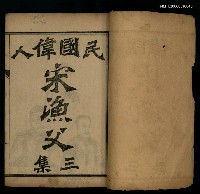 民國偉人
宋漁父
三集